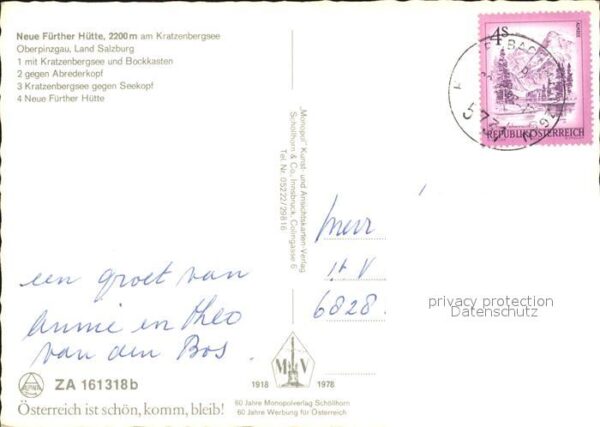 Neue Fürther Hütte, 2200 m am Kratzenbergsee
Oberpinzgau, Land Salzburg
1 mit Kratzenbergsee und Bockkasten
2 gegen Abrederkopf
3 Kratzenbergsee gegen Seekopf
4 Neue Fürther Hütte
4S
REPUBLIK ÖSTERREICH
„Monopol" Kunst- und Ansichtskarten-Verlag
Schöllhorn & Co., Innsbruck, Colingasse 6
Tel. Nr. 05222/29816
een groet van
Annie en Theo
van den Bos.
6828
privacy protection
Datenschutz
M V
1918 1978
60 Jahre Monopolverlag Schöllhorn
60 Jahre Werbung für Österreich
ZA 161318b
Österreich ist schön, komm, bleib!